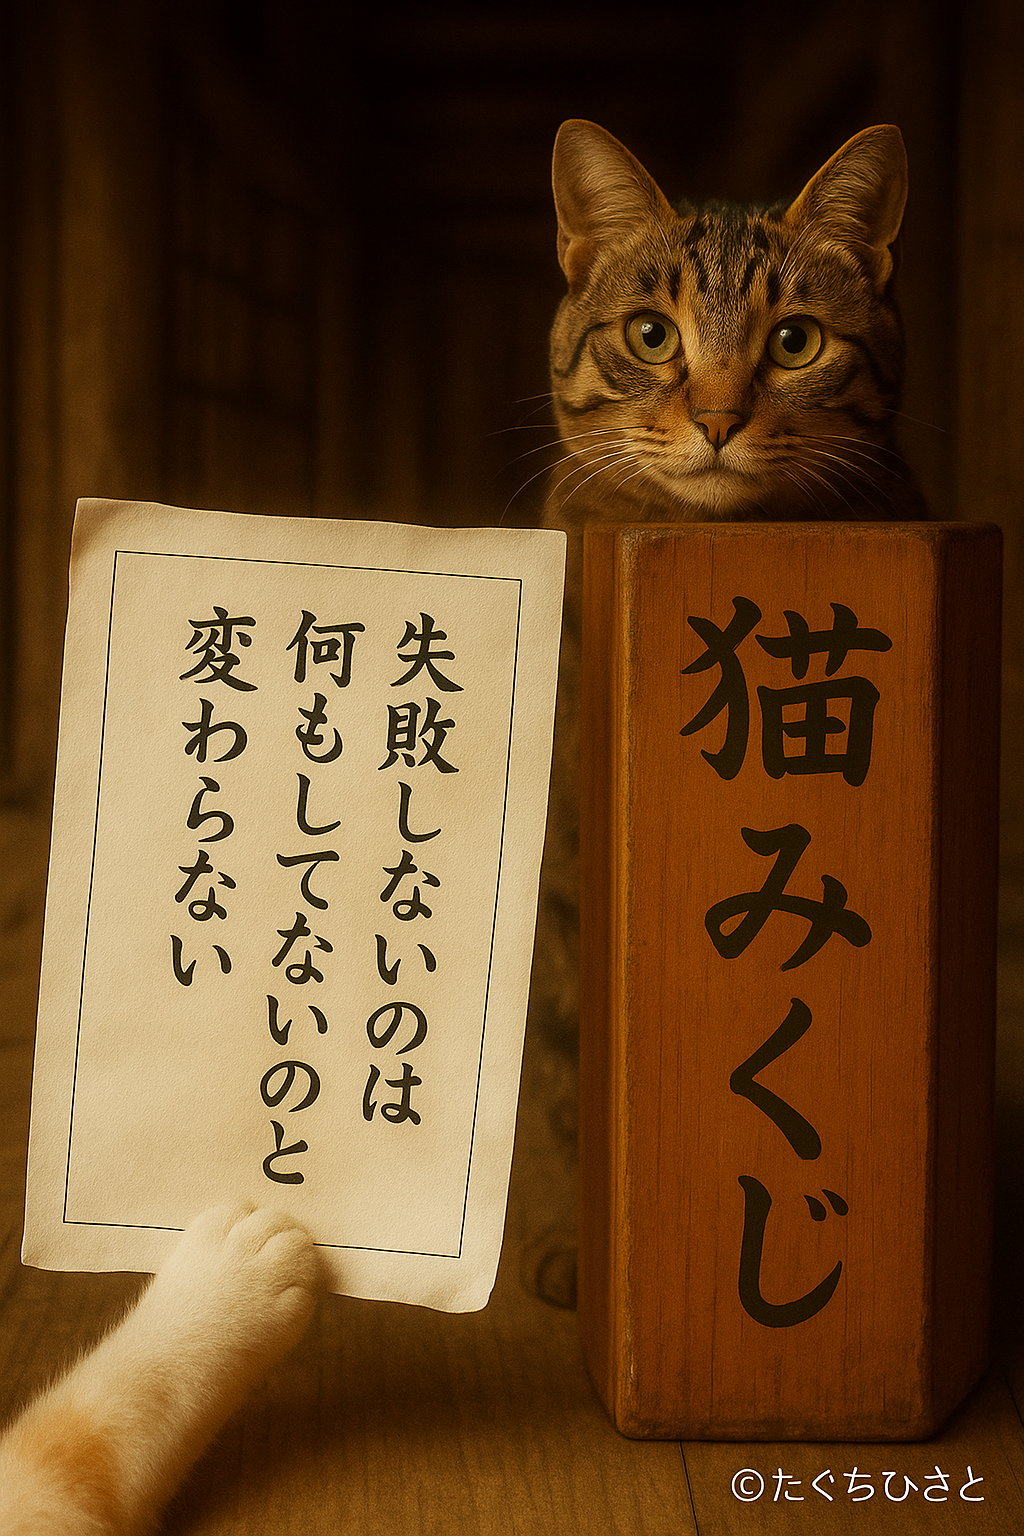 失敗しないのは
何もしてないのと
変わらない
猫みくじ
©たぐちひさと